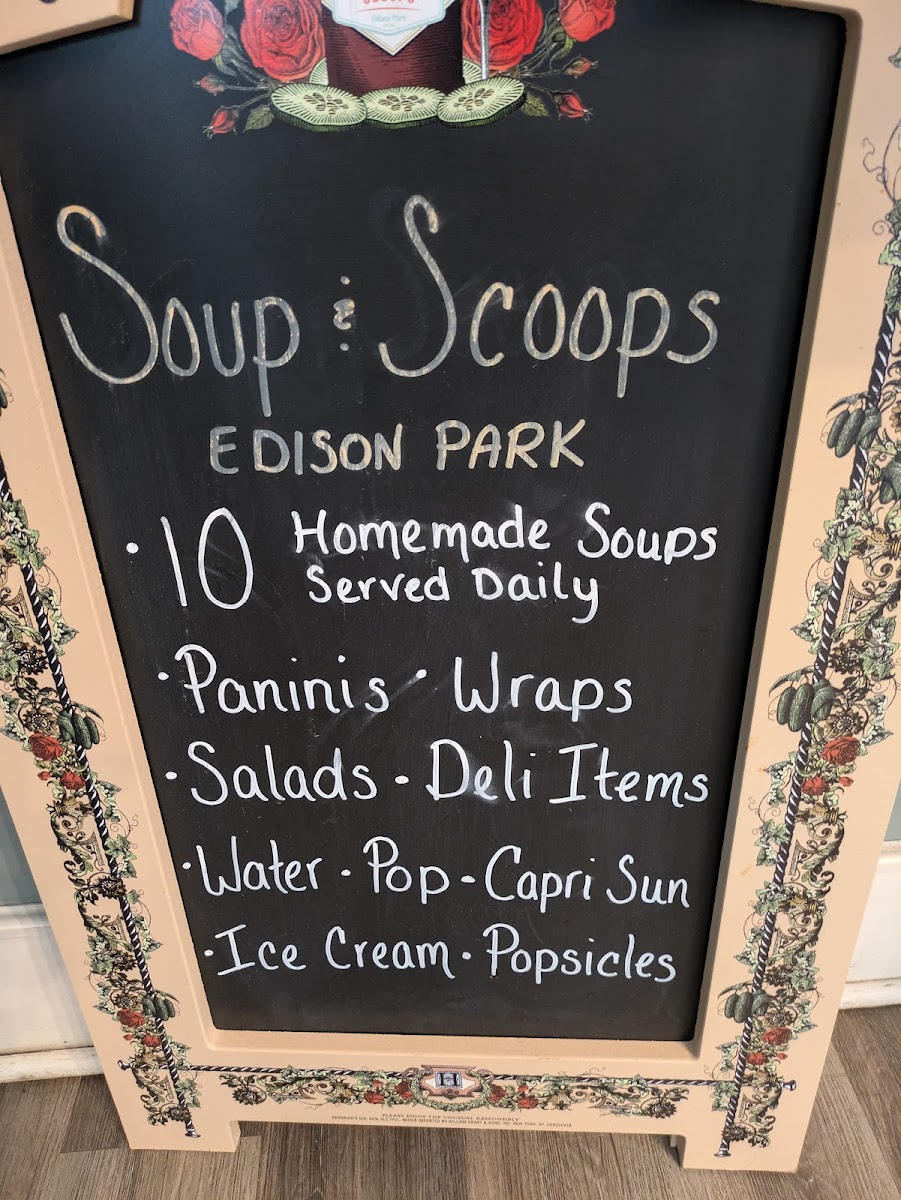 Edison Park
Soup & Scoops
EDISON PARK
• 10 Homemade Soups
Served Daily
• Paninis • Wraps
• Salads • Deli Items
• Water • Pop - Capri Sun
• Ice Cream • Popsicles
H
PLEASE ENJOY THE UNUSUAL RESPONSIBLY